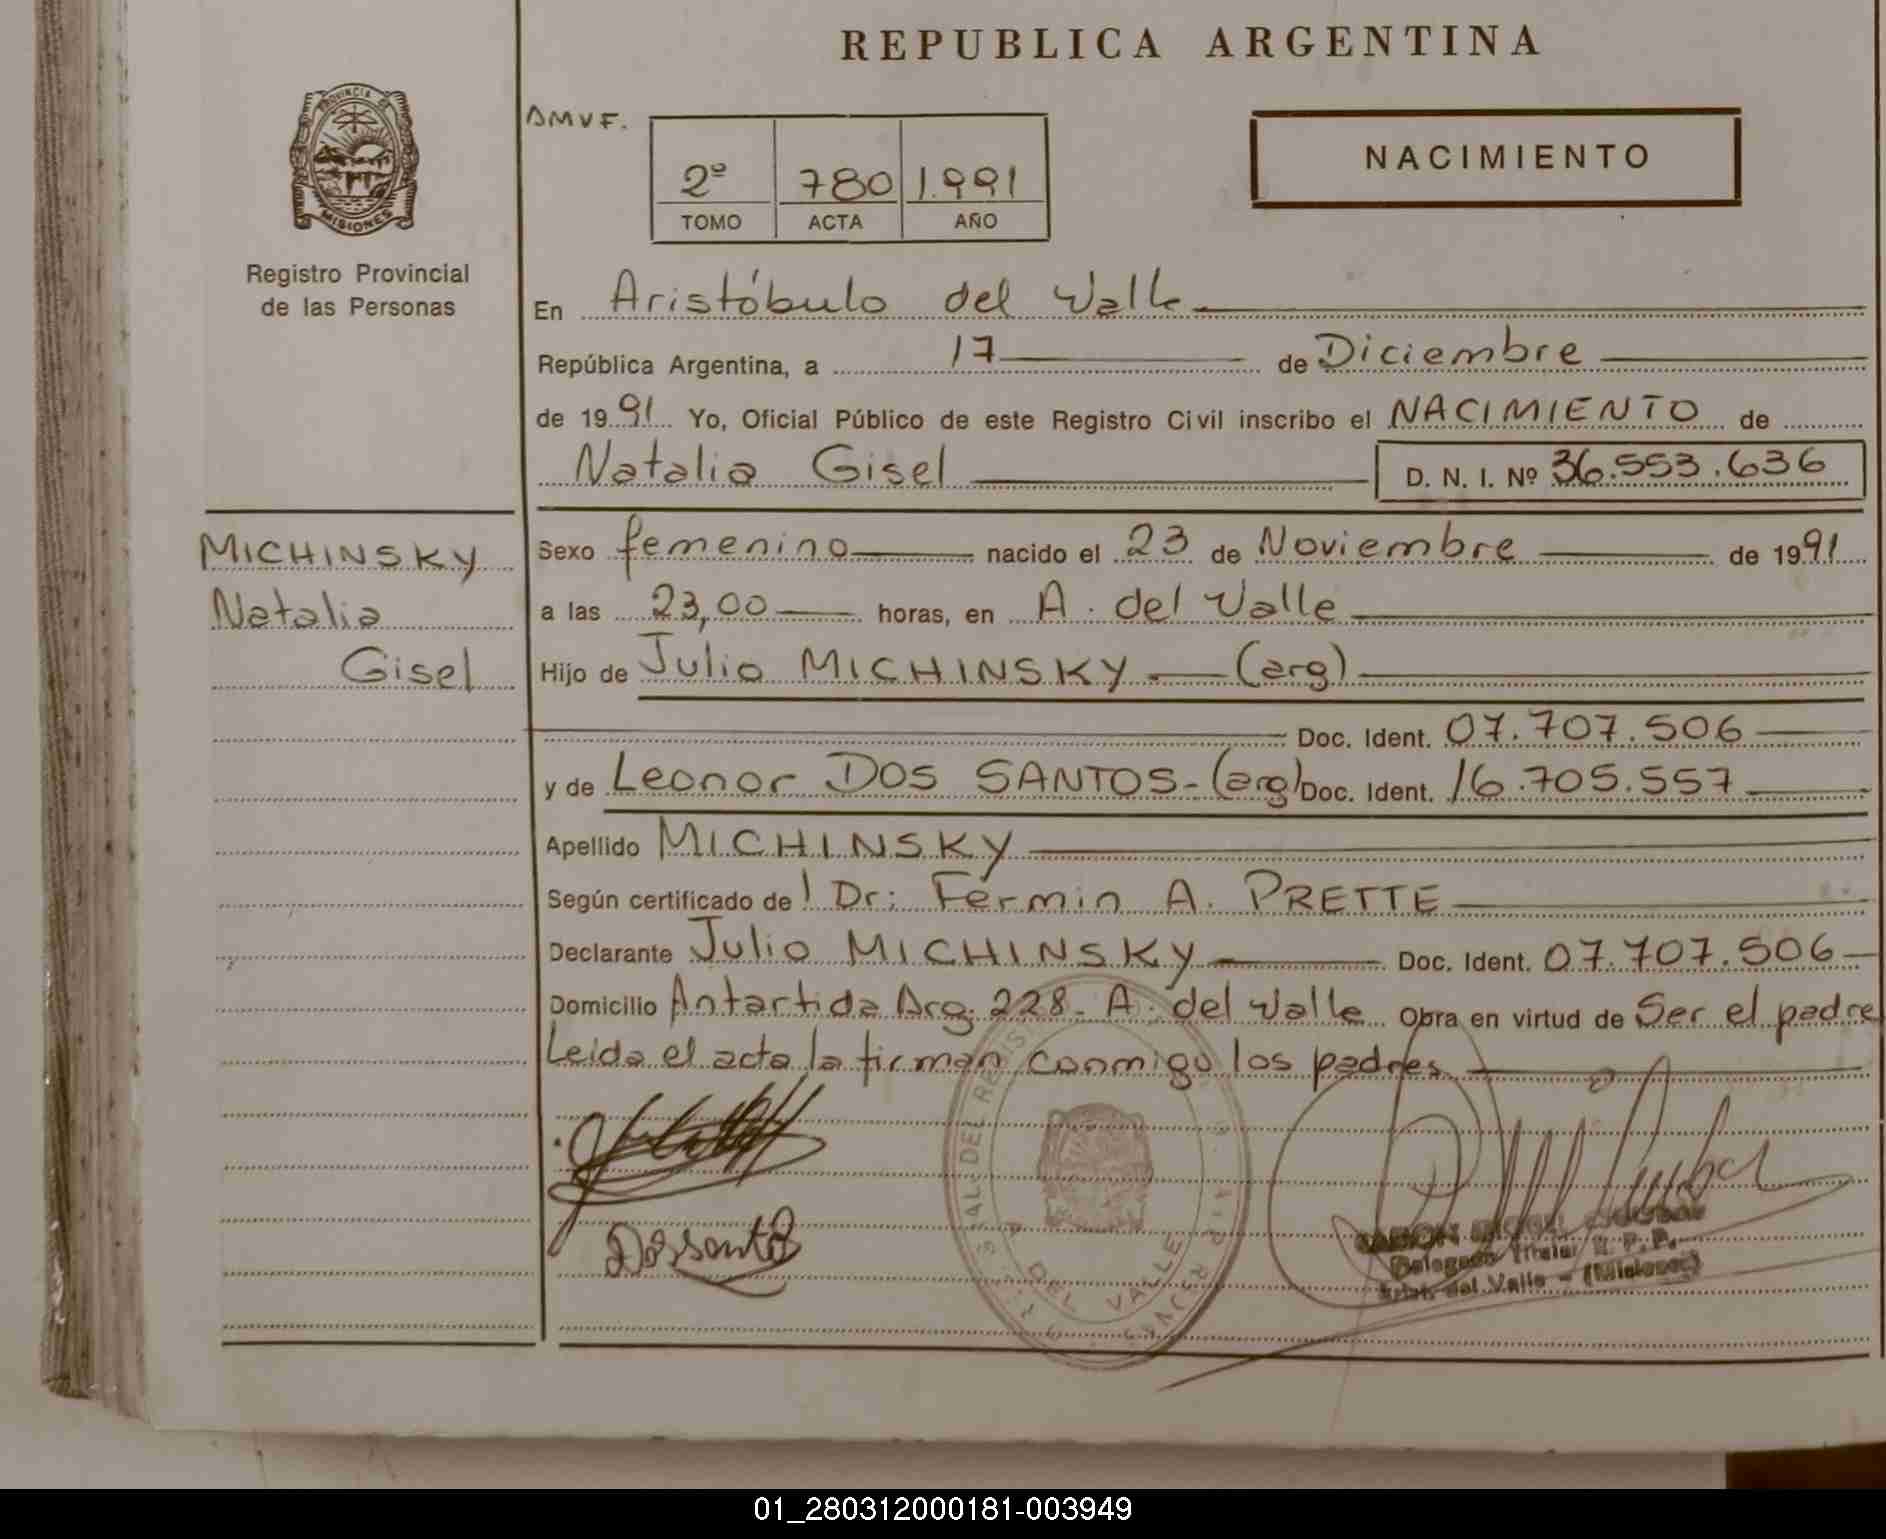 REPUBLICA ARGENTINA
PROVINCIA DE
MISIONES
Registro Provincial
de las Personas
DMVF.
2º 780 1.991
TOMO ACTA AÑO
NACIMIENTO
En Aristóbulo del Valle
República Argentina, a 17 de Diciembre
de 1991 Yo, Oficial Público de este Registro Civil inscribo el NACIMIENTO de
Natalia Gisel D. N. I. Nº 36.553.636
MICHINSKY
Natalia
Gisel
Sexo femenino nacido el 23 de Noviembre de 1991
a las 23,00 horas, en A. del Valle
Hijo de Julio MICHINSKY (arg)
Doc. Ident. 07.707.506
y de Leonor DOS SANTOS - (arg) Doc. Ident. 16.705.557
Apellido MICHINSKY
Según certificado de l Dr: Fermin A. PRETTE
Declarante Julio MICHINSKY Doc. Ident. 07.707.506
Domicilio Antartida Arg. 228 - A. del Valle Obra en virtud de Ser el padre
Leida el acta, la firman conmigo los padres
Dossantos
DEL VALLE
Delegado Titular R. P. P.
Arist. del Valle - (Misiones)
01_280312000181-003949